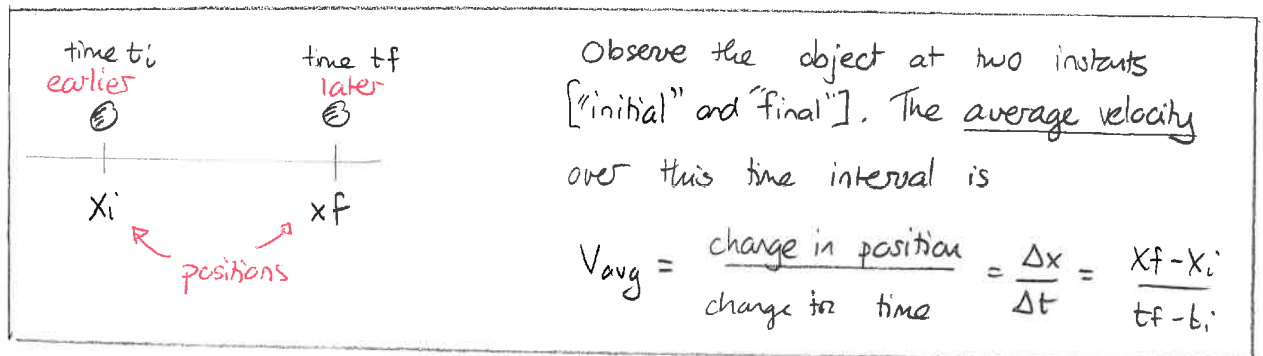 time ti
earlier
time tf
later
xi
xf
positions
Observe the object at two instants
["initial" and "final"]. The average velocity
over this time interval is
Vavg = change in position / change in time = Δx / Δt = xf - xi / tf - ti